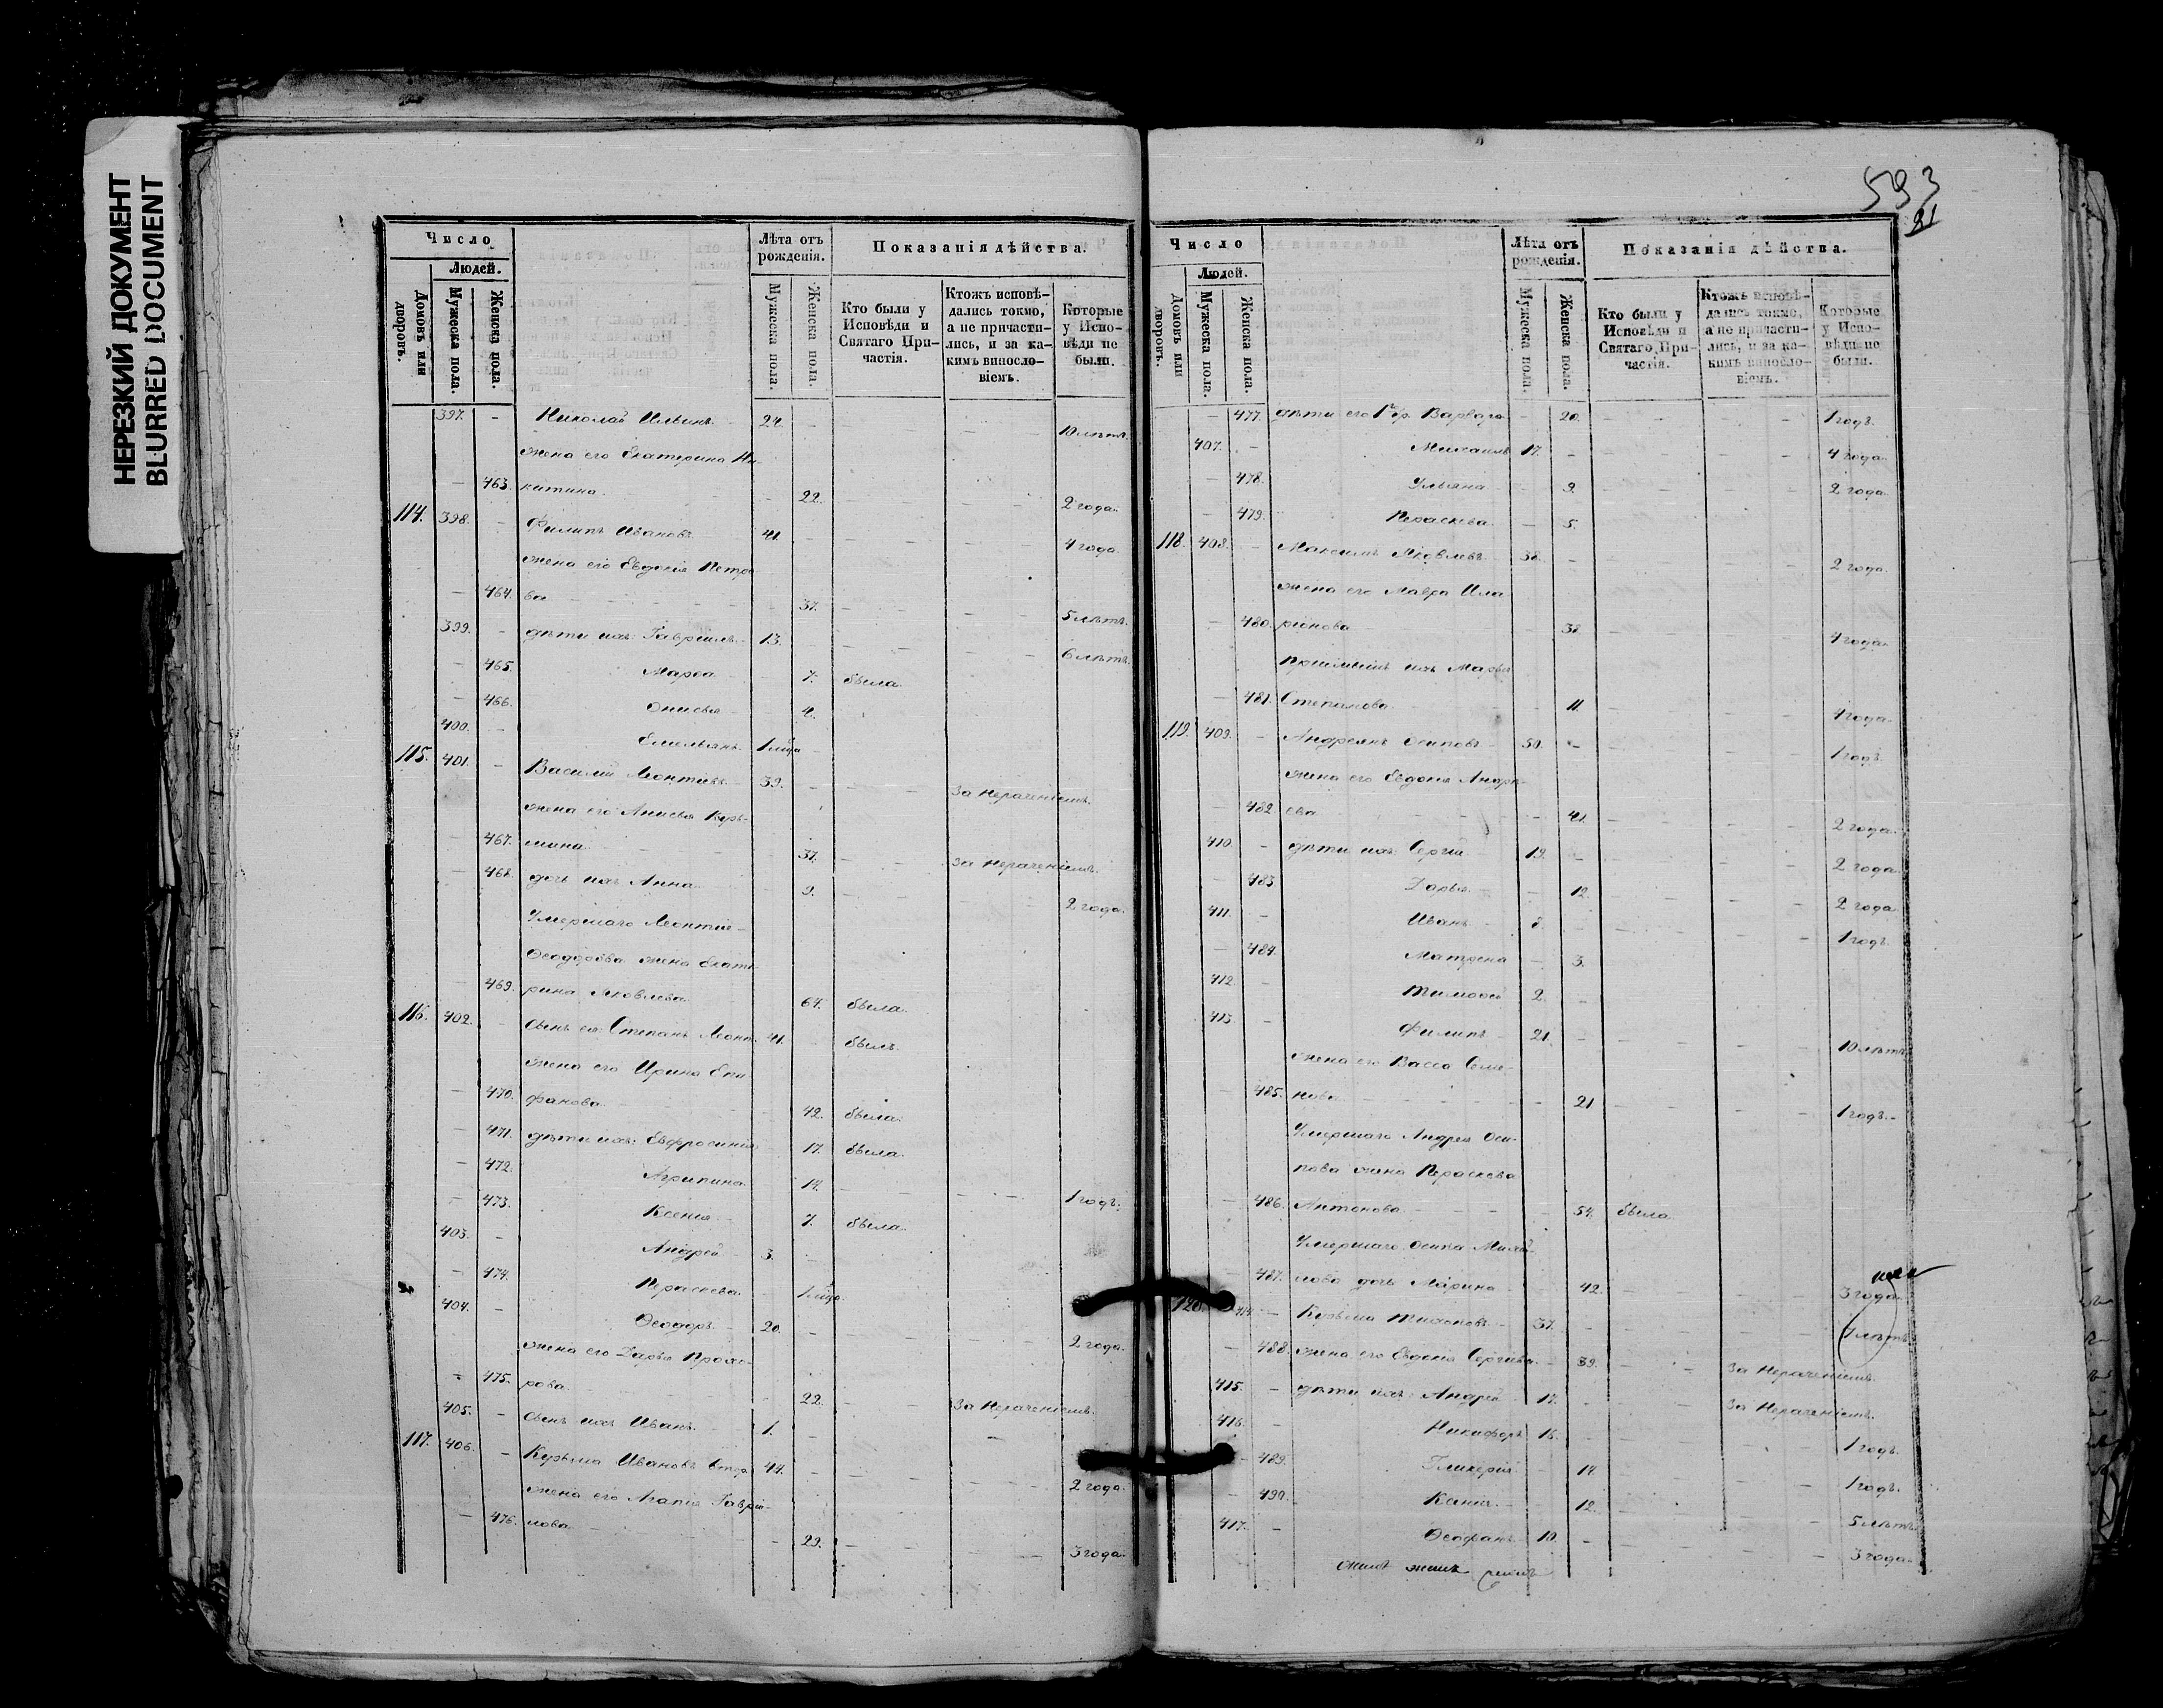 НЕРЕЗКИЙ ДОКУМЕНТ
BLURRED DOCUMENT
Число
Людей.
Домовъ или дворовъ.
Мужеска пола.
Женска пола.
Лѣта отъ рожденія.
Мужеска пола.
Женска пола.
Показанія дѣйства.
Кто были у Исповѣди и Святаго Причастія.
Ктожъ исповѣдались токмо, а не причастились, и за какимъ винословіемъ.
Которые у Исповѣди не были.
397. - Николай Ильинъ 24. - 10 лѣтъ.
жена его Екатерина Ни-
- 463. китина. - 22. 2 года.
114. 398. - Филипъ Ивановъ 41. - 4 года.
жена его Евдокія Петро
- 464. ва - 37. 5 лѣтъ.
399. - дѣти ихъ: Гавріилъ 13. 6 лѣтъ.
- 465. Марѳа 7. была.
- 466. Анисья 4.
400. - Емельянъ 1 года
115. 401. - Василій Леонтьевъ 39. - за нераченіемъ.
жена его Анисья Кузь-
- 467. мина. 37. за нераченіемъ.
- 468. дочь ихъ Анна 9. 2 года.
Умершаго Леонтія
Ѳеодорова жена Екате-
- 469. рина Яковлева 64. была.
116. 402. - Сынъ ея: Степанъ Леонт. 41. - былъ.
жена его Ирина Епи
- 470. фанова. 42. была.
- 471. дѣти ихъ: Евфросинія 17. была.
- 472. Агрипина 14. 1 годъ.
- 473. Ксенія 7. была.
403. - Андрей 3.
- 474. Пераскева. 1 года.
404. - Ѳеодоръ 20. - 2 года.
жена его Дарья Прохо-
- 475. рова. 22. за нераченіемъ.
405. - сынъ ихъ Иванъ. 1. -
117. 406. - Кузьма Ивановъ 44. - 2 года.
жена его Агапія Гаврі-
- 476. лова - 29. 3 года.
593
21
Число
Людей.
Домовъ или дворовъ.
Мужеска пола.
Женска пола.
Лѣта отъ рожденія.
Мужеска пола.
Женска пола.
Показанія дѣйства.
Кто были у Исповѣди и Святаго Причастія.
Ктожъ исповѣдались токмо, а не причастились, и за какимъ винословіемъ.
Которые у Исповѣди не были.
- 477. дѣти его Варвара - 20. 1 годъ.
407. - Михаилъ 17. - 4 года.
- 478. Ульяна - 9. 2 года.
- 479. Пераскева - 5.
118. 408. - Максимъ Яковлевъ 38. - 2 года.
жена его Мавра Ила
- 480. ріонова 38 4 года.
ихъ Марья
- 481. Степанова. - 11. 4 года.
119. 409. - Андреянъ Осиповъ 50. - 1 годъ.
жена его Евдокія Андре-
- 482. ева - 41. 2 года.
410. - дѣти ихъ: Сергій 19. - 2 года.
- 483 Дарья - 12. 2 года
411. - Иванъ 8. - 1 годъ.
- 484. Матрена - 3.
412. - Тимоѳей 2. -
413. - Филипъ 21. - 10 лѣтъ.
жена его Васса Семе-
- 485. нова - 21 1 годъ.
Умершаго Андрея Оси-
пова жена Пераскева
- 486. Антонова - 54. была
Умершаго Осипа Михай-
- 487. лова дочь Марина - 42. 3 года.
120. 414. - Кузьма Тихоновъ 37. - 7 лѣтъ
- 488. жена его Евдокія Сергіева - 39. за нераченіемъ.
415. - дѣти ихъ: Андрей 17. - за нераченіемъ.
416. - Никифоръ 15. - 1 годъ.
- 489. Гликерія - 14. 1 годъ.
- 490. Ксенія - 12. 5 лѣтъ.
417. - Ѳеофанъ 10. - 3 года.